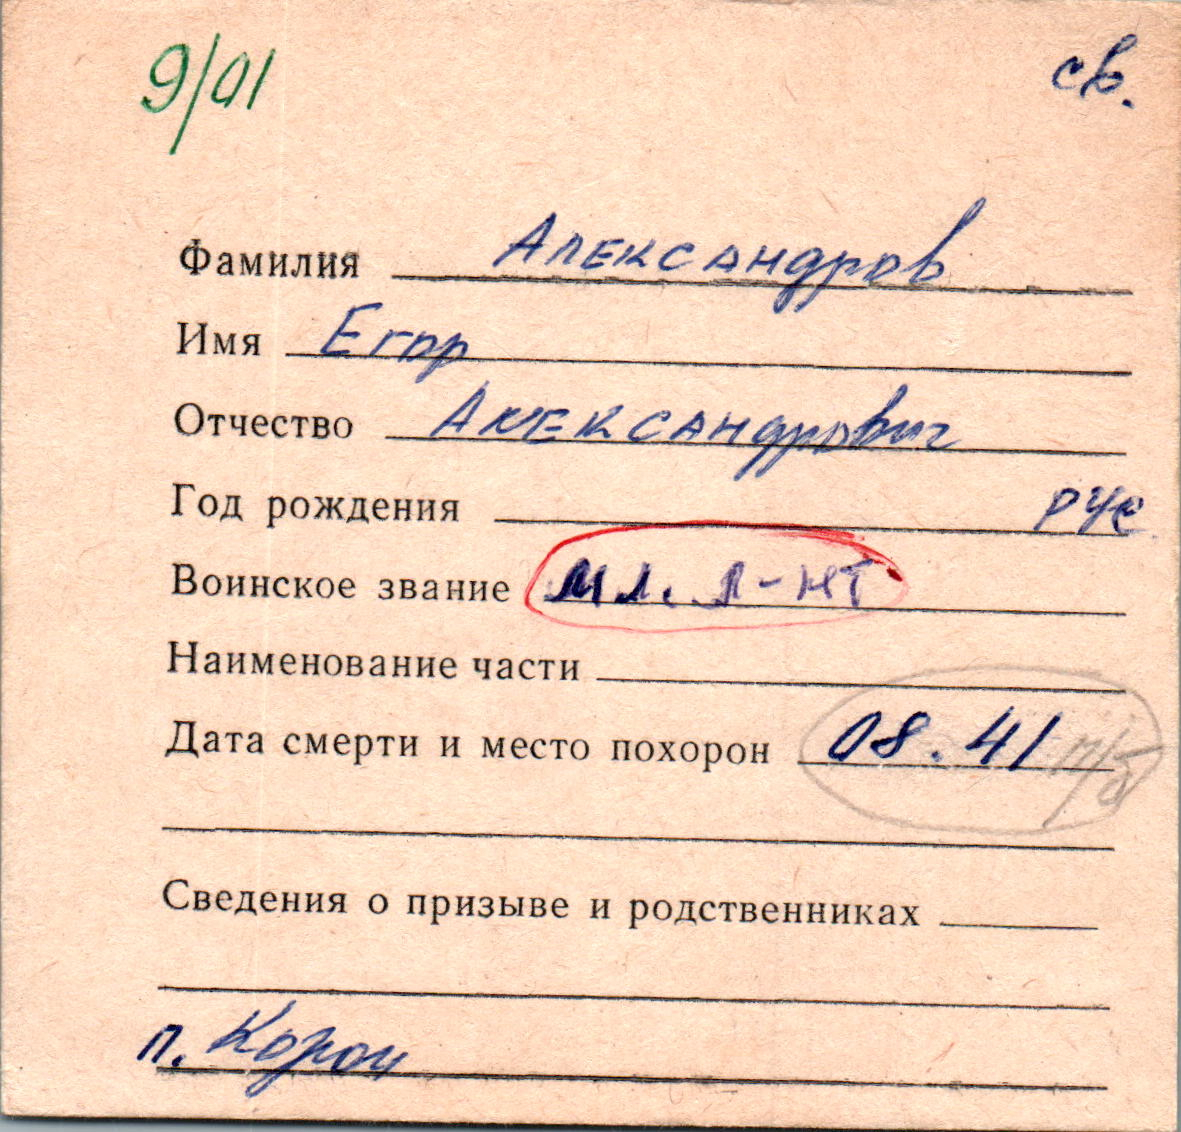 9/01 св.
Фамилия Александров
Имя Егор
Отчество Александрович
Год рождения рус
Воинское звание мл. л-нт
Наименование части
Дата смерти и место похорон 08.41 п/б
Сведения о призыве и родственниках
п.